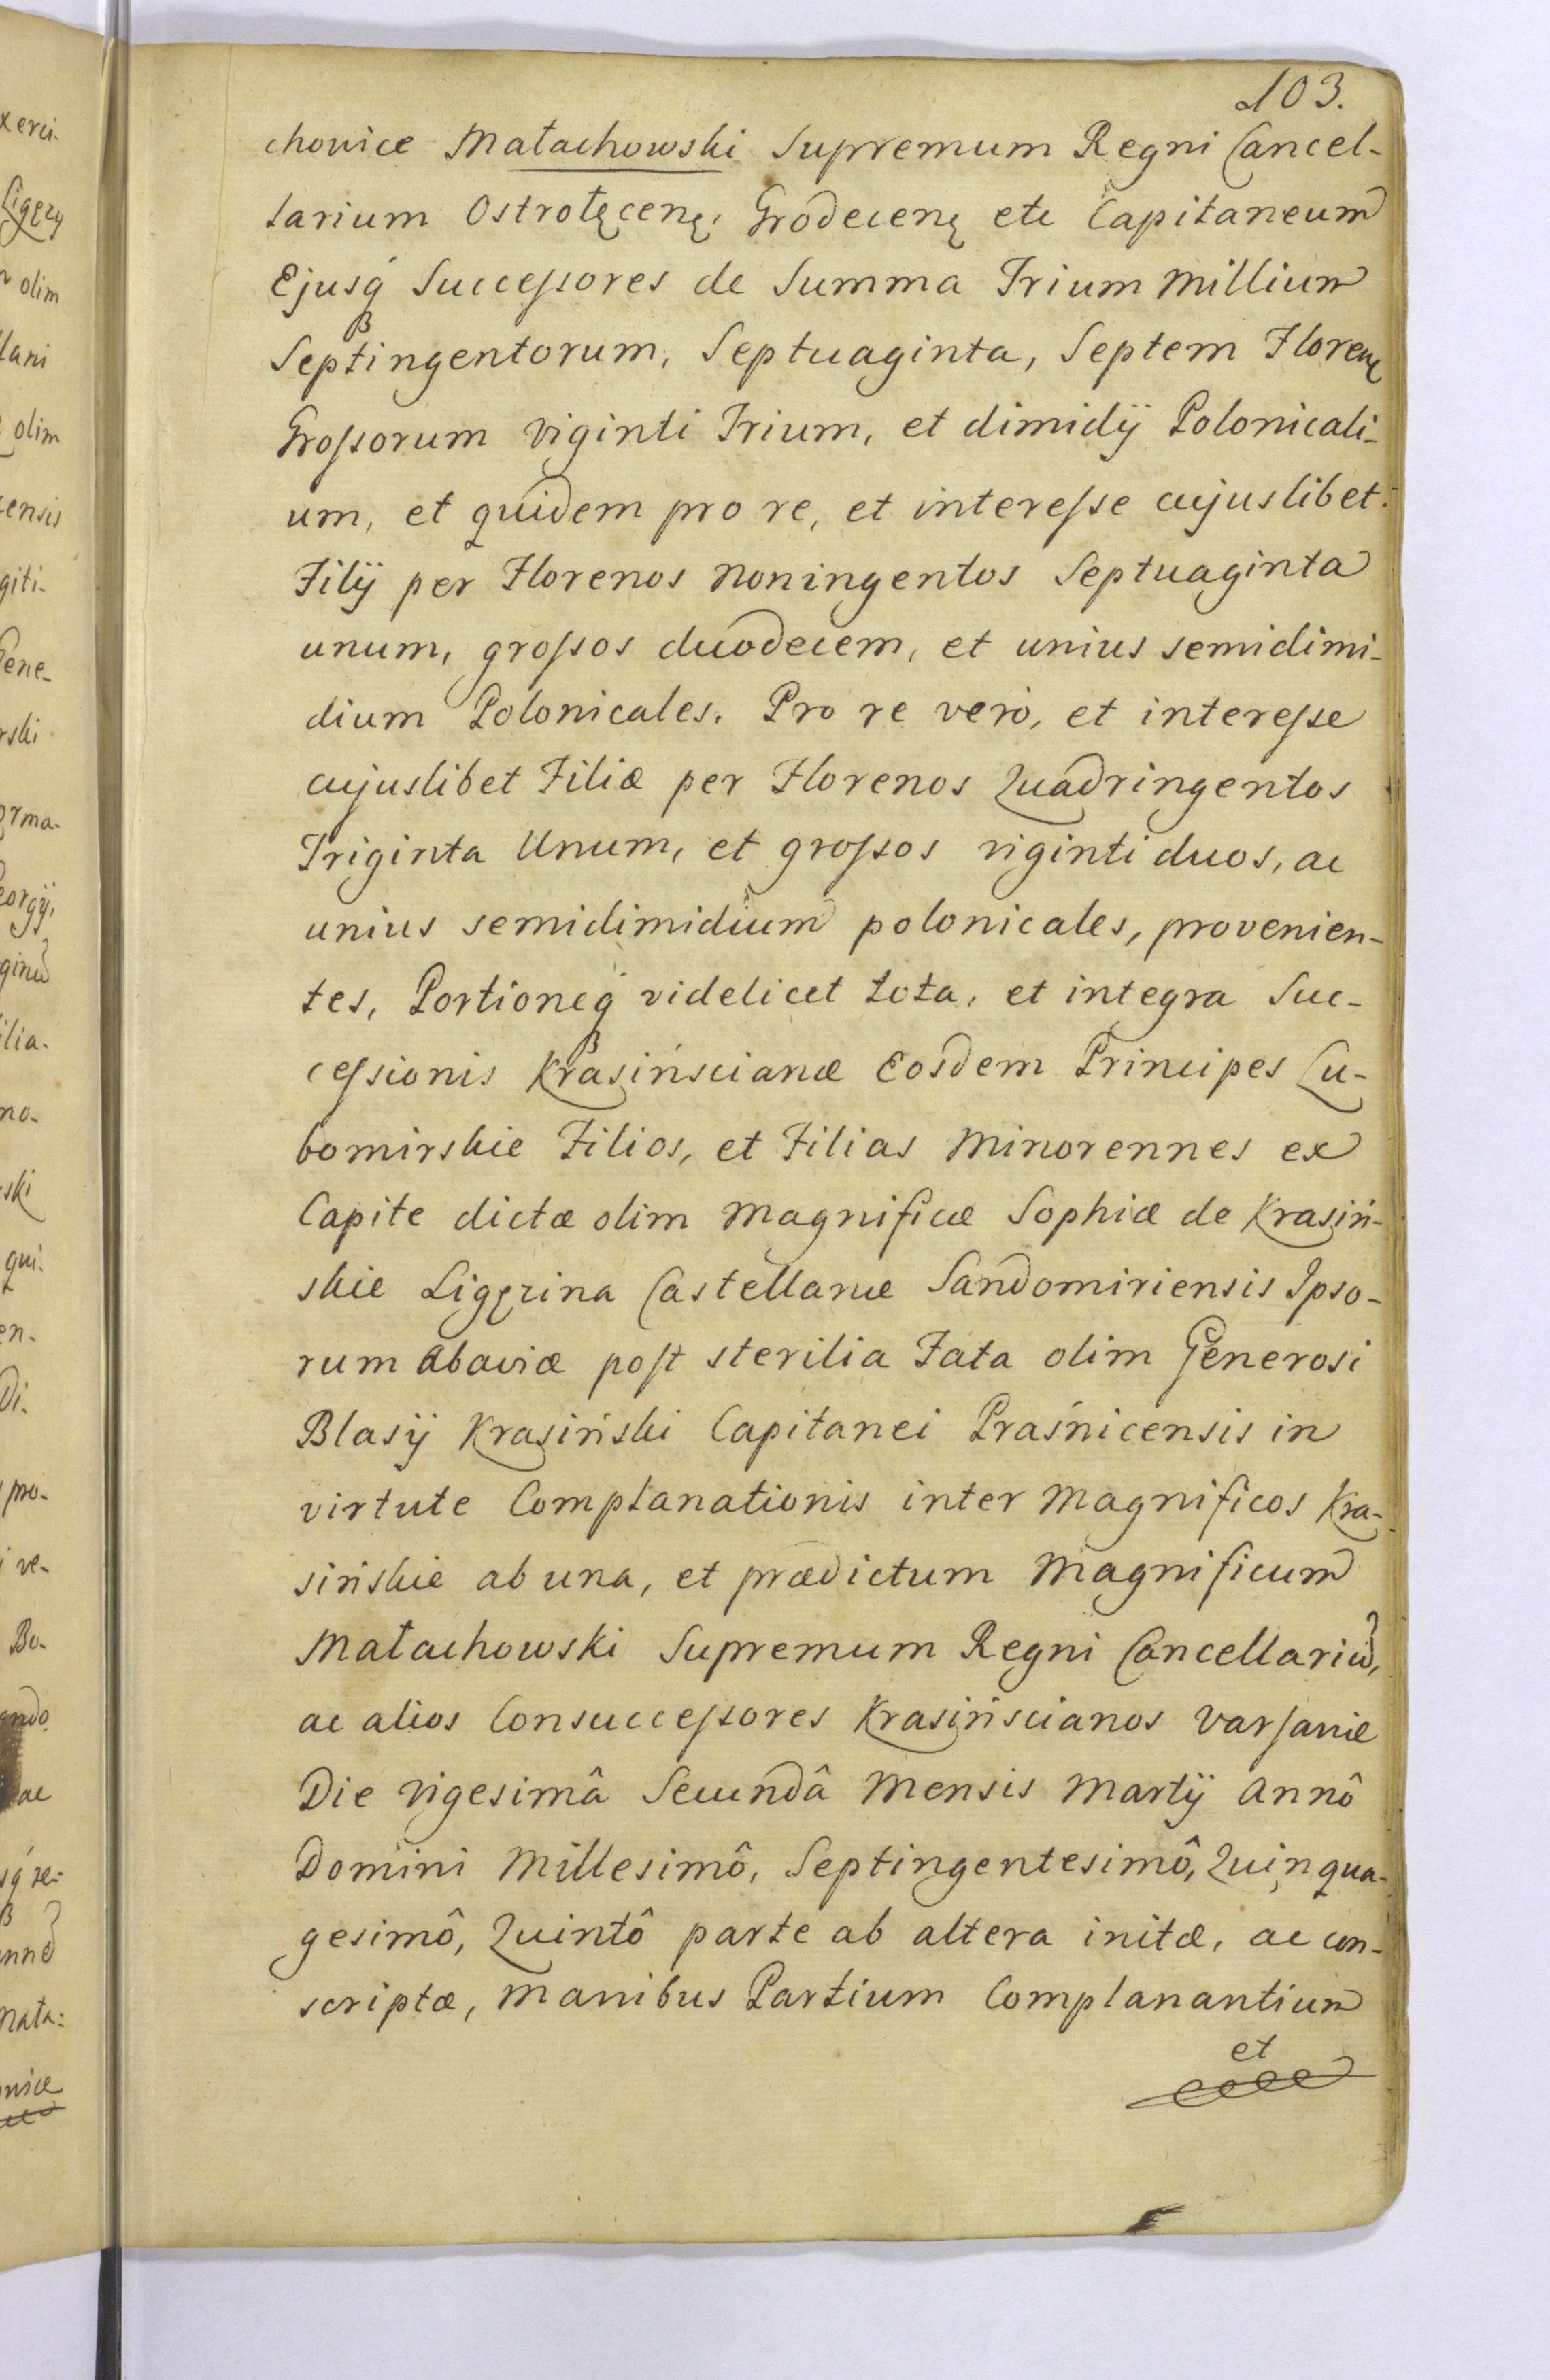 103.
chovice Małachowski Supremum Regni Cancel-
larium Ostrołęcenę, Grodecenę etc Capitaneum
Ejusq́ Successores de Summa Trium Millium
Septingentorum, Septuaginta, Septem Florenę
Grossorum viginti Trium, et dimidÿ Polonicali-
um, et quidem pro re, et interesse cujuslibet
Filÿ per Florenos Noningentos Septuaginta
unum, grossos duodecem, et unius semidimi-
dium Polonicales. Pro re verò, et interesse
cujuslibet Filiæ per Florenos Quadringentos
Triginta Unum, et grossos viginti duos, ac
unius semidimidium polonicales, provenien-
tes, Portioneq́ videlicet tota, et integra Suc-
cessionis Krasińscianæ Eosdem Principes Lu-
bomirskie Filios, et Filias Minorennes ex
Capite dictæ olim Magnificæ Sophiæ de Krasiń-
skie Ligęzina Castellanæ Sandomiriensis Ipso-
rum Abaviæ post sterilia Fata olim Generosi
Blasÿ Krasiński Capitanei Praśnicensis in
virtute Complanationis inter Magnificos Kra-
sińskie ab una, et prædictum Magnificum
Małachowski Supremum Regni Cancellariũ,
ac alios Consuccessores Krasińscianos Varsaviæ
Die Vigesimâ Secundâ Mensis Martÿ Annô
Domini Millesimô, Septingentesimô, Quinqua-
gesimô, Quintô parte ab altera initæ, ac con-
scriptæ, Manibus Partium Complanantium
et
xerci-
Ligęzy
olim
olim
giti-
Gene-
rski
orma-
eorgÿ,
ilia-
no-
ski
qui-
en-
Di-
pro-
ve-
Bo-
ando
ac